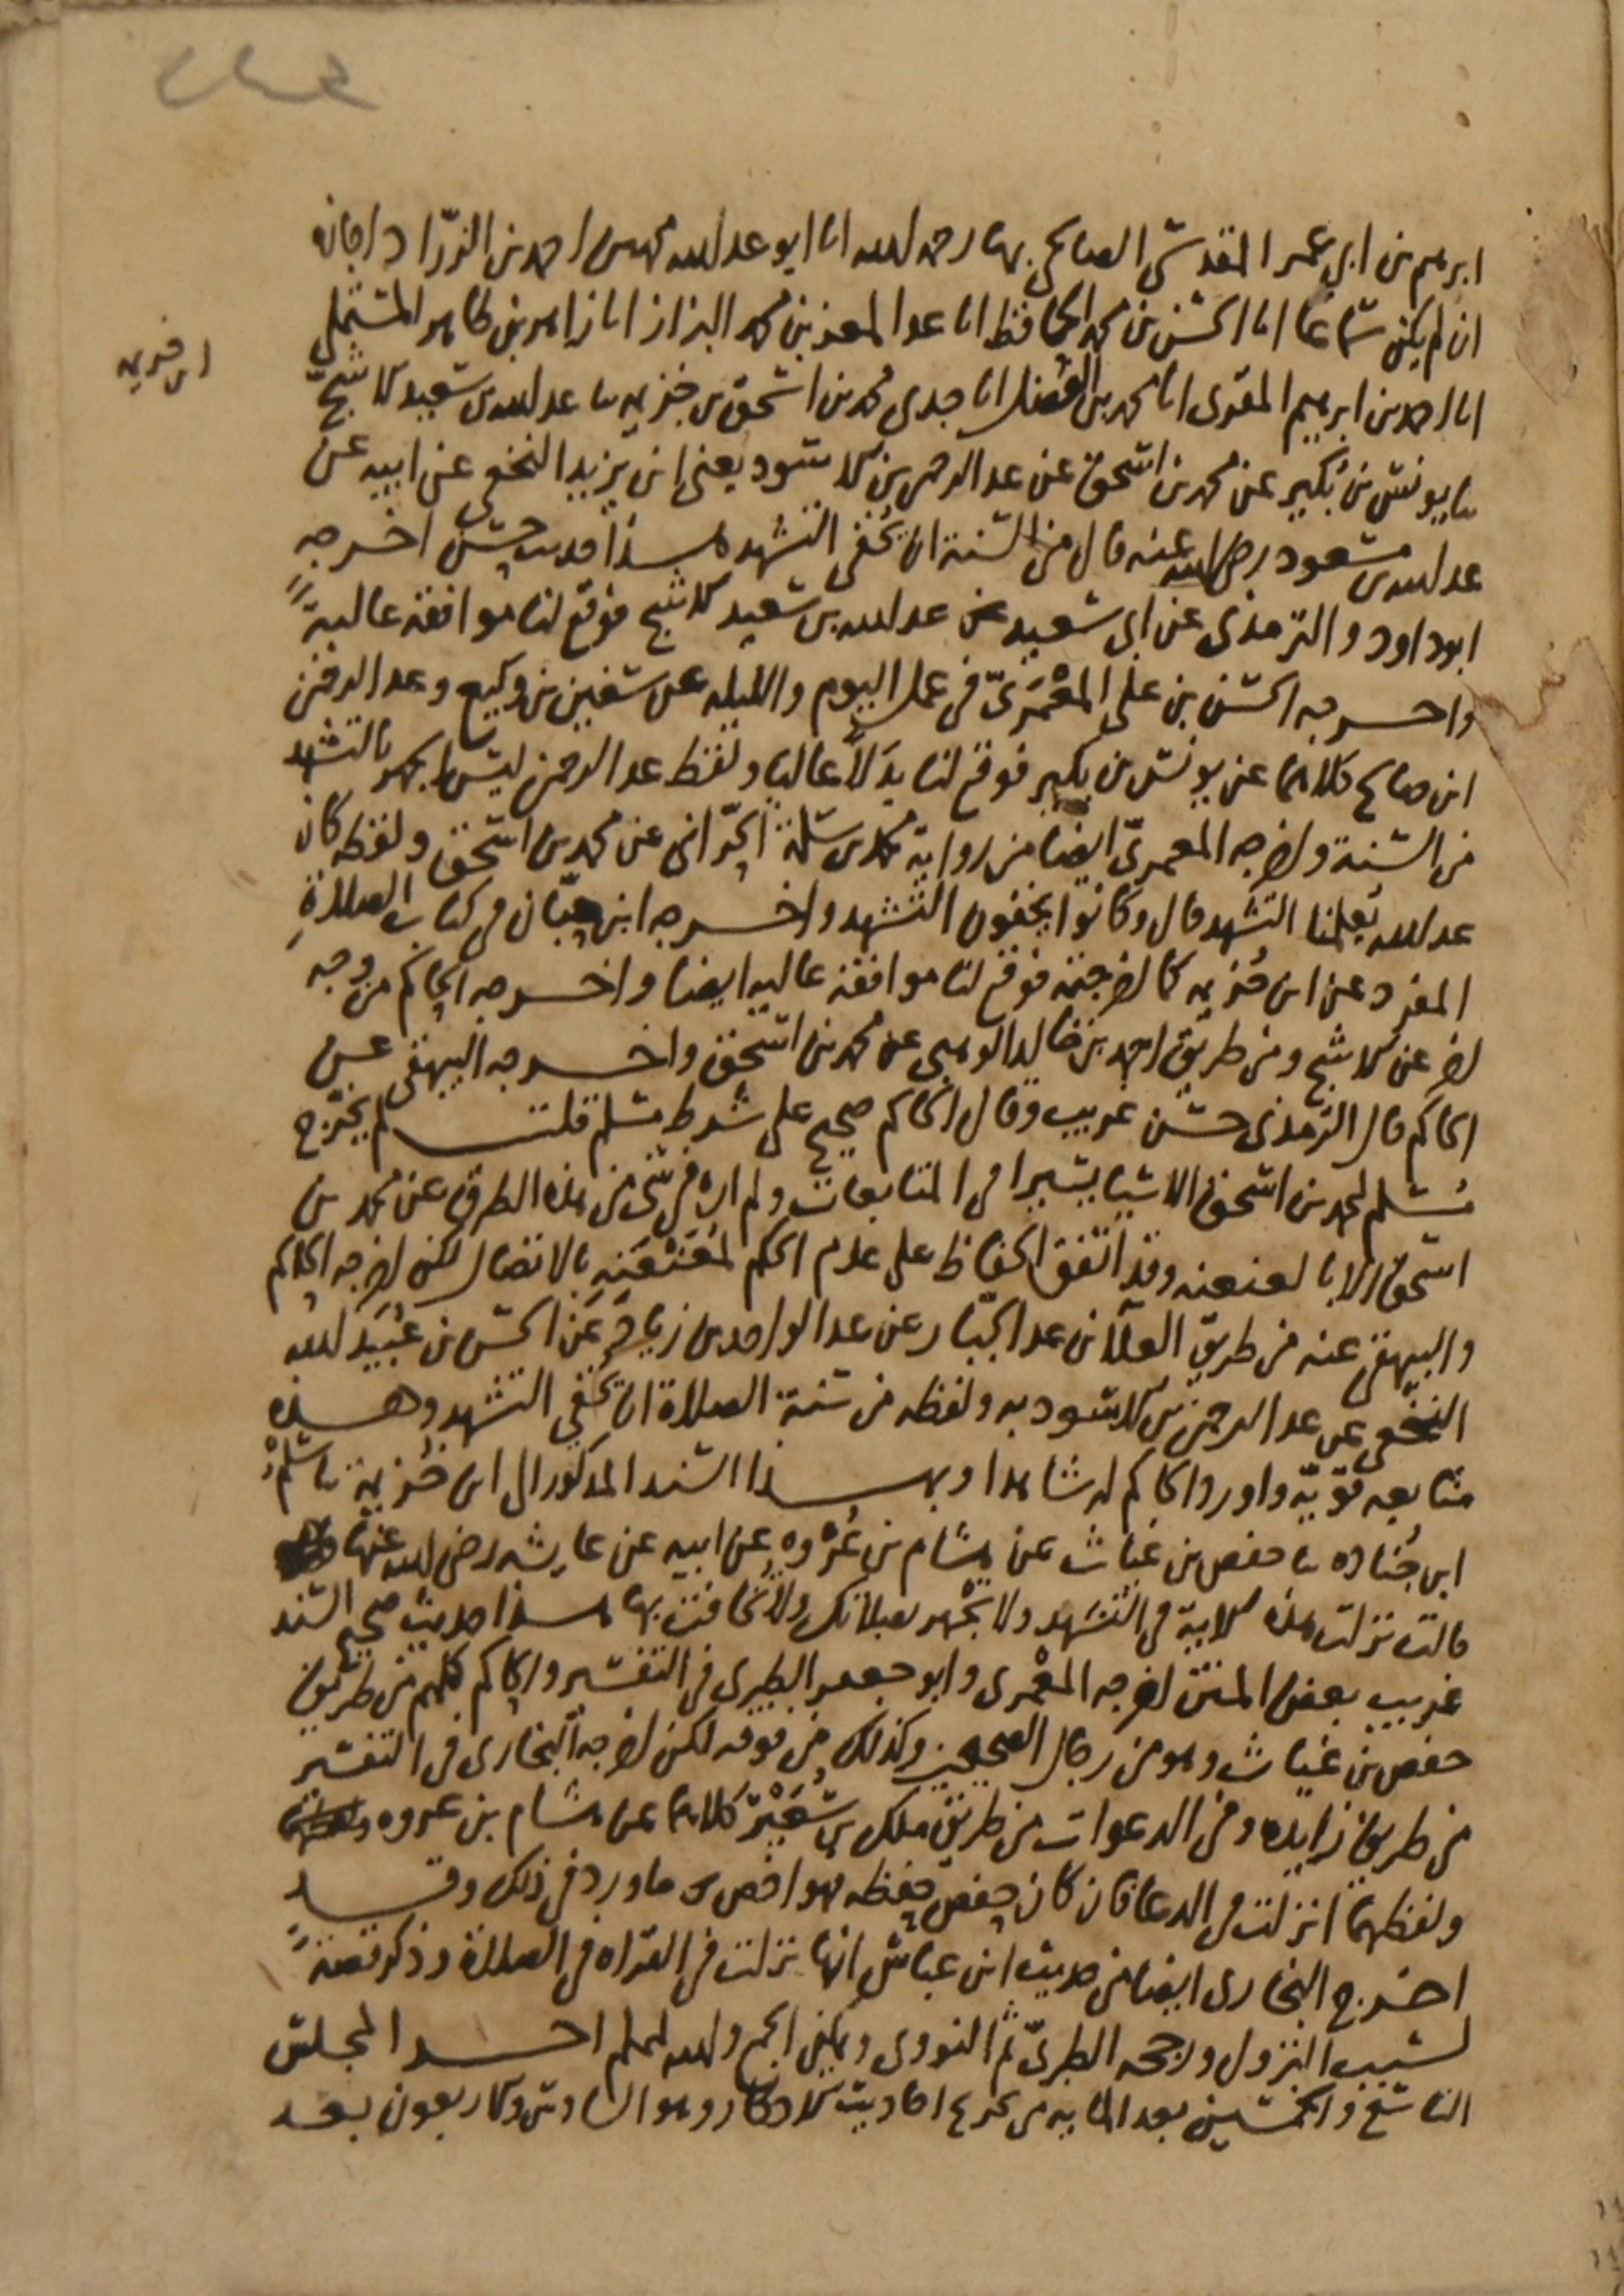 ابرهيم بن ابي عمر المقدسي الصالحي بها رحمه الله انا ابو عبد الله محمد بن احمد بن الزرّاد اجازة
ان لم يكن سماعا انا الحسن بن محمد الحافظ انا عبد المعز بن محمد البزاز انا زاهر بن طاهر المستملي
ابن خزيمه
انا احمد بن ابرهيم المقرى انا محمد بن الفضل انا جدى محمد بن اسحق بن خزيمه نا عبد الله بن سعيد الاشج
نا يونس بن بُكير عن محمد بن اسحق عن عبد الرحمن بن الاسود يعنى ابن يزيد النخعى عن ابيه عن
عبد الله بن مسعود رضى الله عنه قال من السنة ان يُخفى التشهد هذا حديث حسن اخرجه
ابو داود والترمذى عن ابى سعيد عبد الله بن سعيد الاشج فوقع لنا موافقة عاليةً
واخرجه الحسن بن على المَعْمَرىّ فى عمل اليوم والليله عن سفين بن وكيع وعبد الرحمن
ابن صالح كلاهما عن يونس بن بكير فوقع لنا بدلًا عاليا ولفظ عبد الرحمن ليس الجهر بالتشهد
من السنة واخرجه المعمرىّ ايضا من رواية محمد بن سلمة الحرّانى عن محمد بن اسحق ولفظه كان
عبد الله يُعلمنا التشهد قال وكانوا يخفون التشهد واخرجه ابن حِبّان فى كتاب الصلاةِ
المفرد عن ابن خُزيمه كما اخرجته فوقع لنا موافقة عاليه ايضا واخرجه الحاكم من وجه
اخر عن الاشج ومن طريق احمد بن خالد الوهبى عن محمد بن اسحق واخرجه البيهقى عن
الحاكم قال الترمذى حسن غريب وقال الحاكم صحيح على شرط مسلم قلت لم يخرّج
مُسلم لمحمد بن اسحق الا شيا يسيرا فى المتابعات ولم اره فى شى من هذه الطرق عن محمد بن
اسحق الا بالعنعنه وقد اتفق الحفاظ على عدم الحكم لمُعَنْعَنِه بالاتصال لكن اخرجه الحاكم
والبيهقى عنه من طريق العلآ بن عبد الجبّار عن عبد الواحد بن زياد عن الحسن بن عُبَيد الله
النخعى عن عبد الرحمن بن الاسود به ولفظه من سنة الصلاة ان يُخفى التشهد وهذه
متابعه قويّه واورد الحاكم له شاهدا وبهذا السند المذكور الى ابن خُزيمة نا سَلْمُ
ابن جُناده نا حفص بن غياث عن هشام بن عُرْوه عن ابيه عن عايشه رضى الله عنها
قالت نزلت هذه الاية فى التشهد ولا تجهر بصلاتك ولا تُخافت بها هذا حديث صحيح السند
غريب بعض المتن اخرجه المعْمرى وابو جعفر الطبرى فى التفسير والحاكم كلهم من طريق
حفص بن غياث وهو من رجال الصحيحين وكذلك من فوقه لكن اخرجه البخارى فى التفسير
من طريق زايده وفى الدعوات من طريق ملك بن سُعَيْر كلاهما عن هشام بن عروه
ولفظهما انزلت فى الدعا فان كان حفص حفظه فهو اخص ما ورد فى ذلك وقد
اخرج البخارى ايضا من حديث ابن عباس انها نزلت فى القراه فى الصلاة وذكر قصةً
لسبب النزول ورجحه الطبرىّ ثم النووى ويمكن الجمع والله اعلم اخر المجلس
التاسع والخمسين بعد المايه من تخريج احاديث الاذكار وهو السادس والاربعون بعد